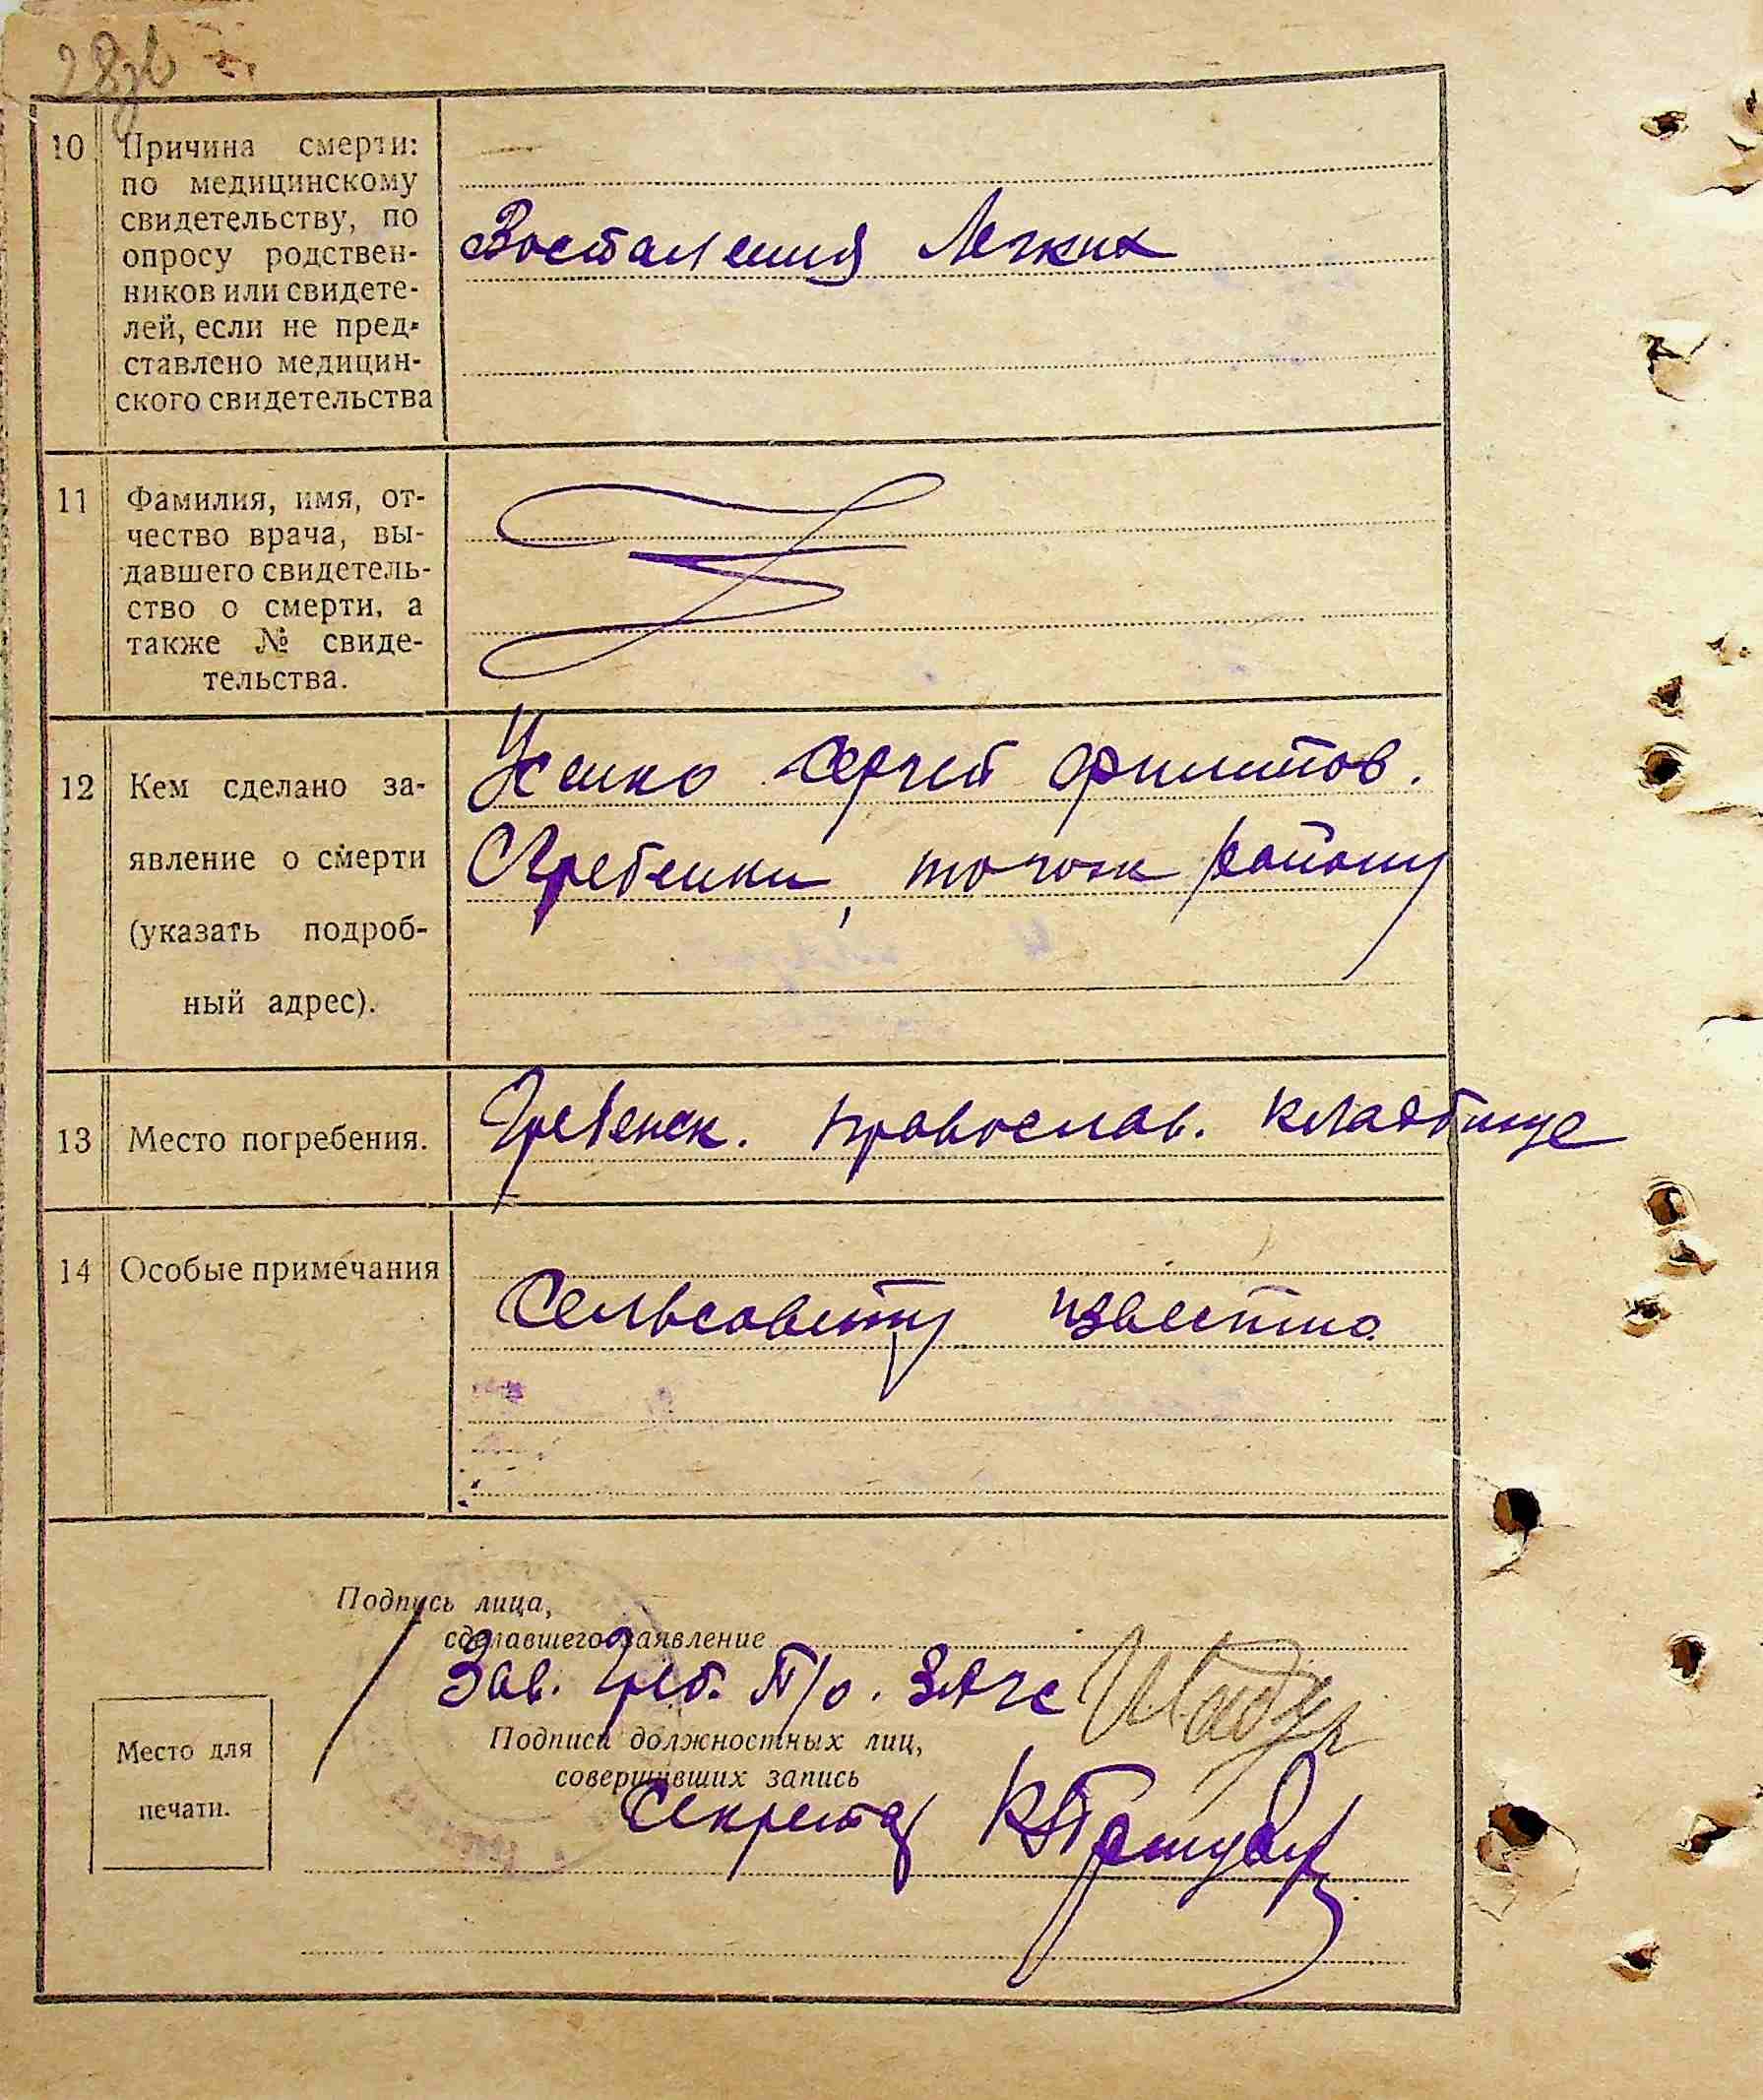 10 Причина смерти:
по медицинскому
свидетельству, по
опросу родствен-
ников или свидете-
лей, если не пред-
ставлено медицин-
ского свидетельства
Воспаления Легких
11 Фамилия, имя, от-
чество врача, вы-
давшего свидетель-
ство о смерти, а
также № свиде-
тельства.
12 Кем сделано за-
явление о смерти
(указать подроб-
ный адрес).
Усенко Сергей Филипов.
С Гребенки, тогож району
13 Место погребения.
Гребенск. православ. кладбище
14 Особые примечания
Сельсовету известно
Подпись лица,
сделавшего заявление
Зав. Греб. П/о. ЗАГС
Подписи должностных лиц,
совершивших запись
Секретар
Место для
печати.